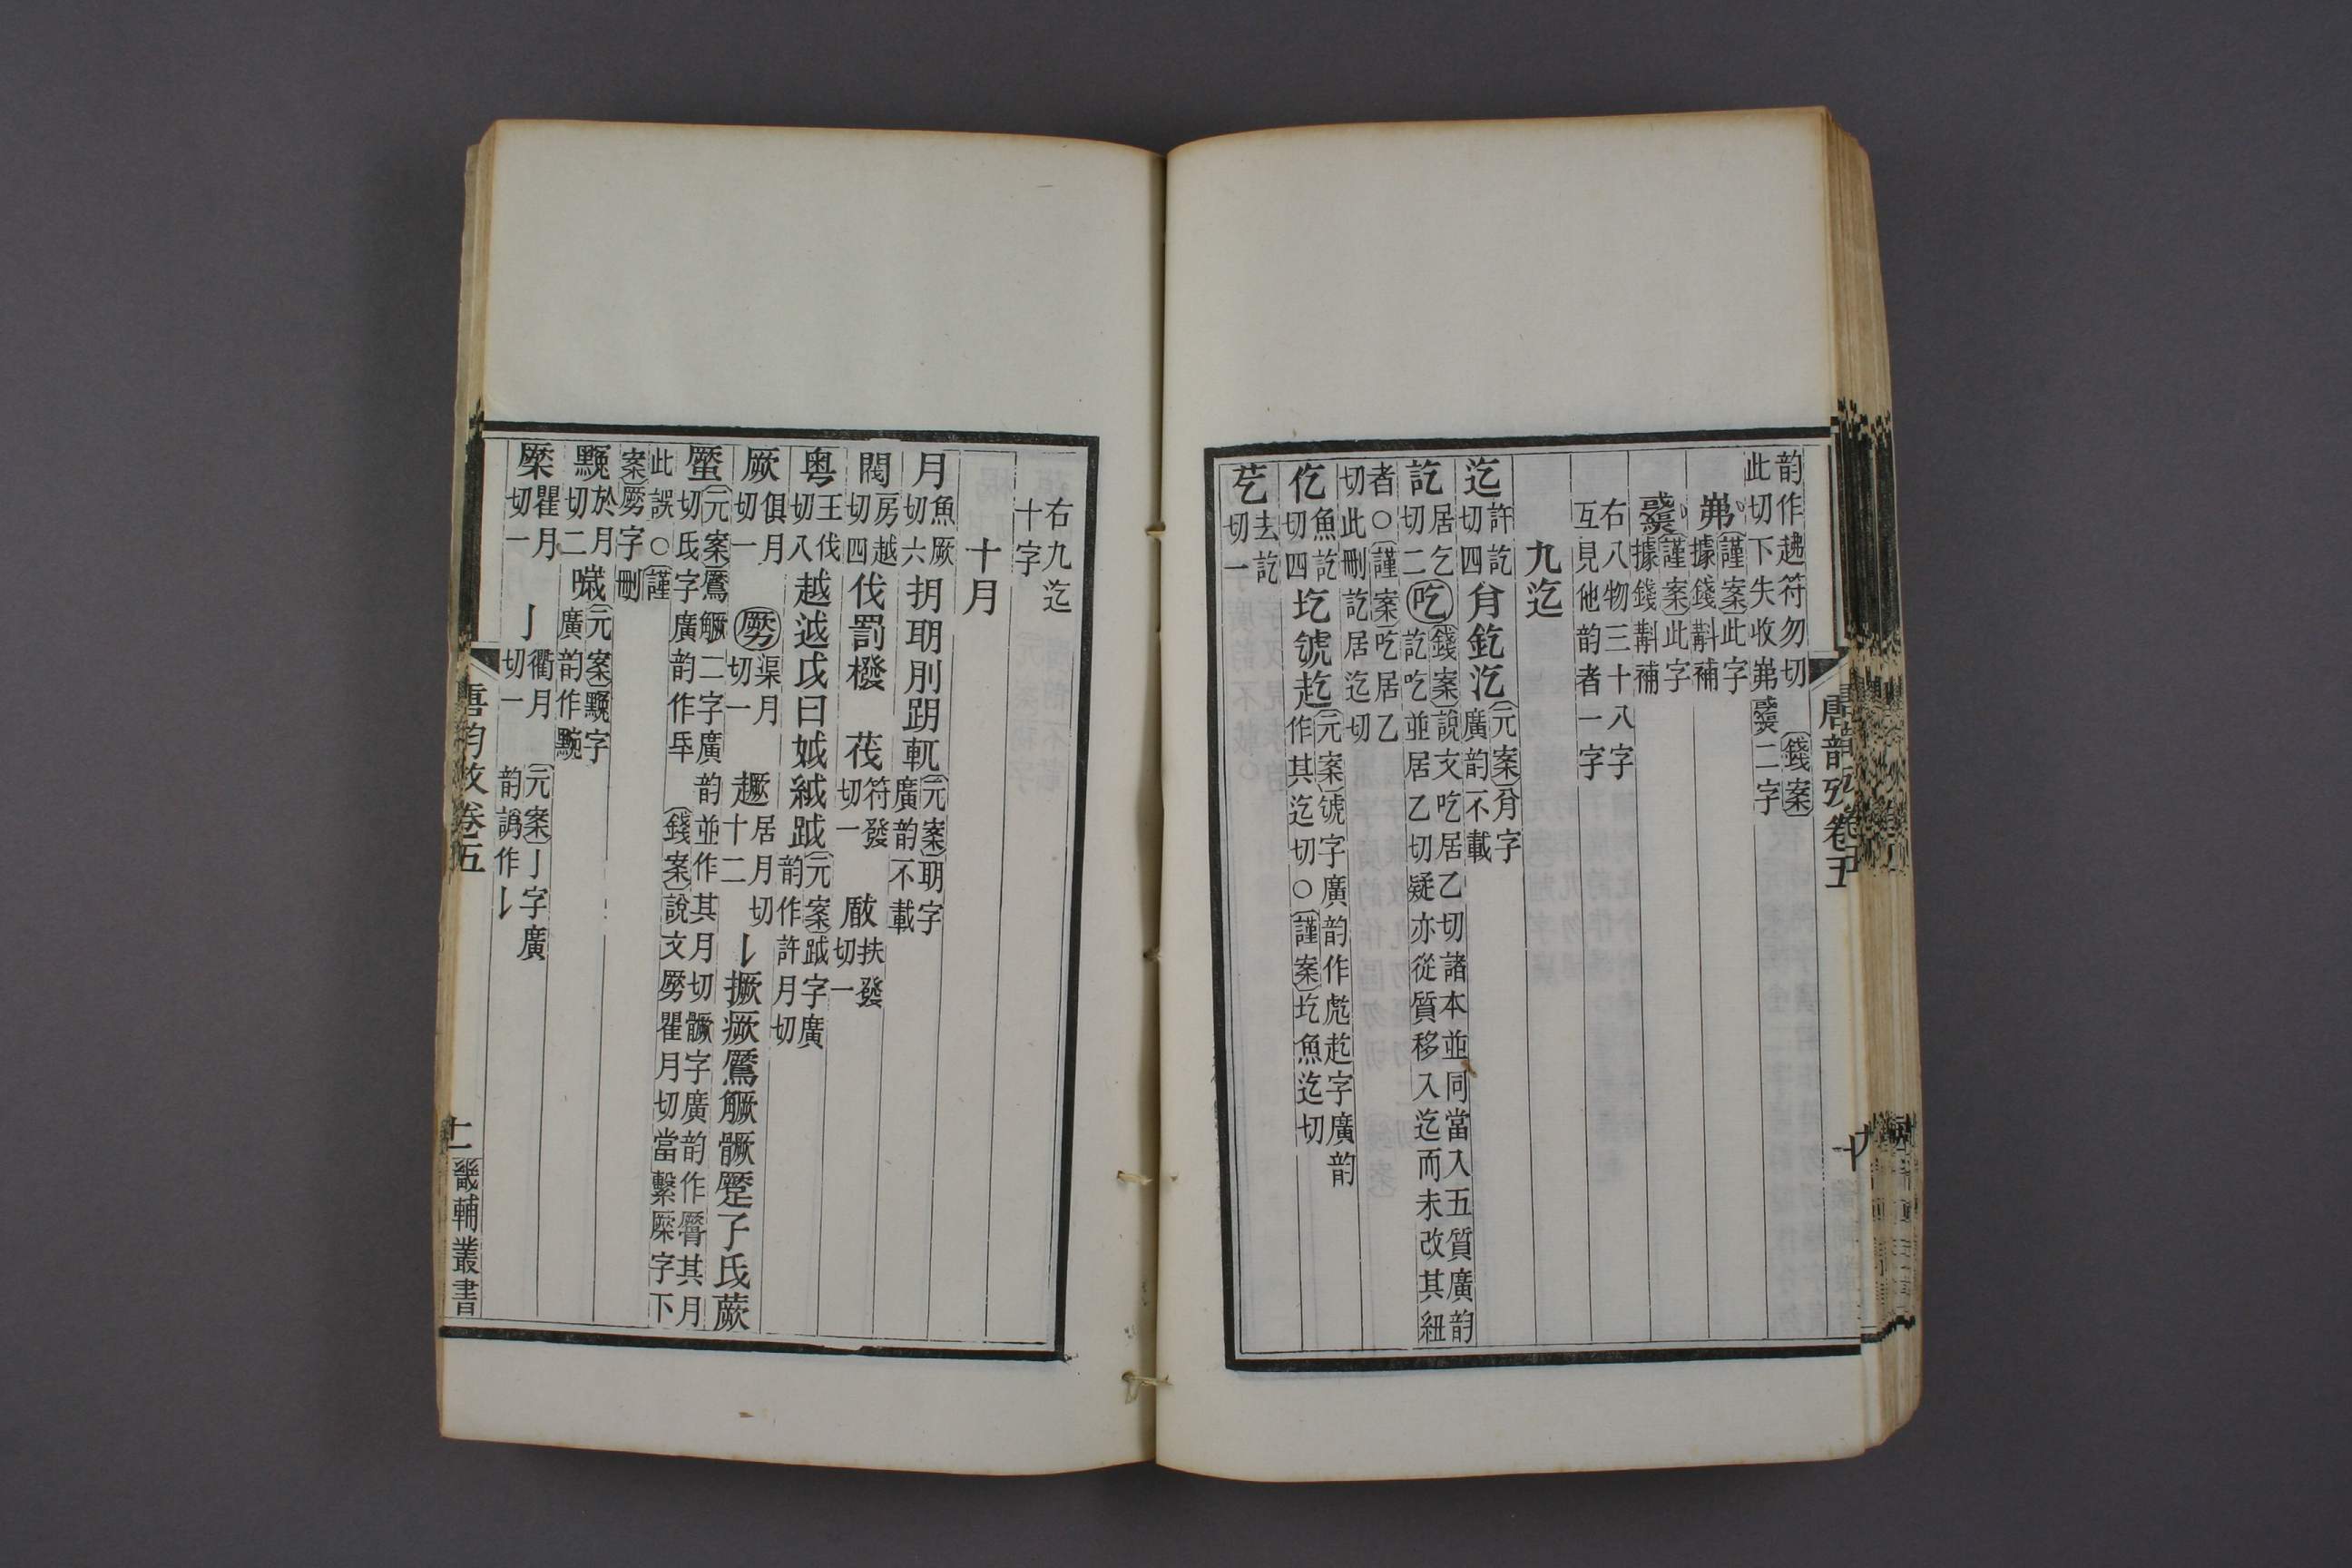 韵作䞞符勿切
此切下失收岪㷫二字
錢案
岪
謹案此字
據錢斠補
謹案此字
據錢斠補
右八物三十八字
互見他韵者一字
九迄
迄
許訖
切四
肸釳汔
元案肸字
廣韵不載
訖
居乞
切二
吃
錢案說文吃居乙切諸本並同當入五質廣韵
訖吃並居乙切疑亦從質移入迄而未改其紐
者○謹案吃居乙
切此刪訖居迄切
仡
魚訖
切四
圪虓赹
元案虓字廣韵作虎赹字廣韵
作其迄切○謹案圪魚迄切
芞
去訖
切一
唐韵攷卷五
十
右九迄
十字
十月
月
魚厥
切六
抈明刖跀軏
元案明字
廣韵不載
閥
房越
切四
伐罰橃
茷
符發
切一
瞂
扶發
切一
粵
王伐
切八
越䟠戉曰娍絨跋
元案跋字廣
韵作許月切
厥
俱月
切一
劂
渠月
切一
趣
居月切
十二
𠄌撅瘚鷢觼髋蹷孒氏蕨
蟨
元案鷢觼二字廣韵並作其月切髋字廣韵作臀其月
切氏字廣韵作氒
錢案說文劂瞿月切當繫橜字下
此誤○謹
案劂字刪
黦
於月
切二
噦
元案黦字
廣韵作䵫
橜
瞿月
切一
亅
衢月
切一
元案亅字廣
韵譌作𠄌
唐韵攷卷五
十一
畿輔叢書